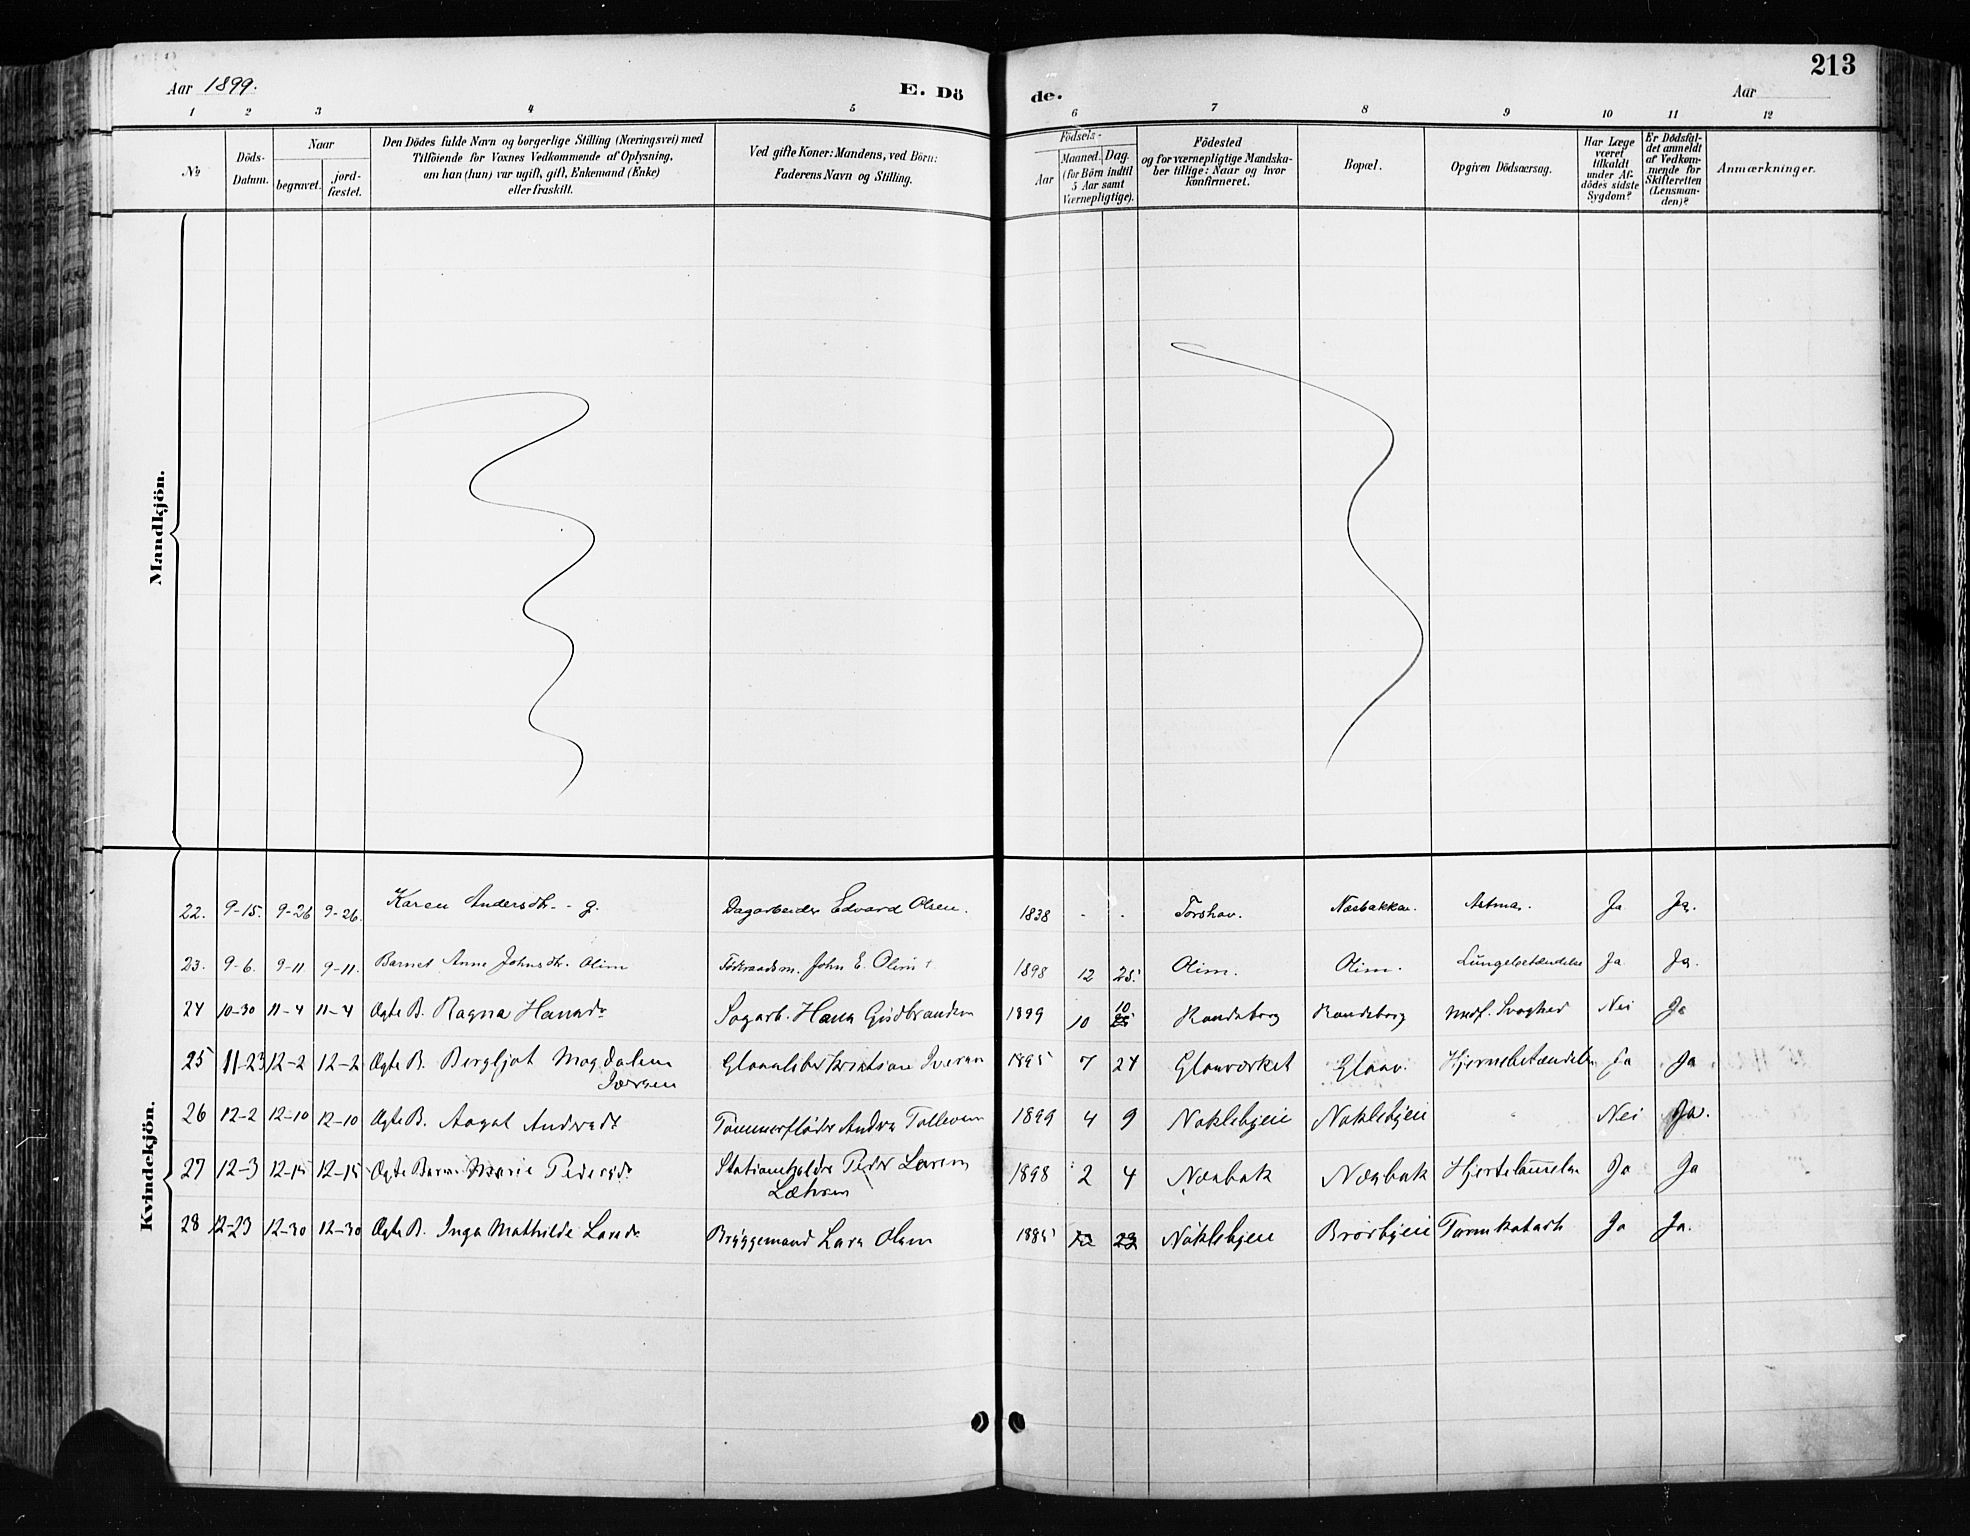 213
Aar 1899.
E. Dö
de.
Aar
1 2 3 4 5 6 7 8 9 10 11 12
No
Döds-
Datum.
Naar
begravet.
jord-
fæstet.
Den Dödes fulde Navn og borgerlige Stilling (Næringsvei) med
Tilföiende for Voxnes Vedkommende af Oplysning,
om han (hun) var ugift, gift, Enkemand (Enke)
eller fraskilt.
Ved gifte Koner: Mandens, ved Börn:
Faderens Navn og Stilling.
Födsels-
Aar
Maaned. Dag.
(for Börn indtil
5 Aar samt
Værnepligtige).
Födested
og for værnepligtige Mandska-
ber tillige: Naar og hvor
konfirmeret.
Bopæl.
Opgiven Dödsaarsag.
Har Læge
været
tilkaldt
under Af-
dödes sidste
Sygdom?
Er Dödsfal-
det anmeldt
af Vedkom-
mende for
Skifteretten
(Lensman-
den)?
Anmærkninger.
Mandkjön.
Kvindekjön.
22. 9-15. 9-26 9-26. Karen Andersdtr. - g. Dagarbeider Edvard Olsen. 1838 - - Torshov. Næsbakken. Astma. Ja Ja.
23. 9-6. 9-11 9-11. Barnet Anne Johnsdtr. Olim John E. Olim 1898 12 25. Olim. Olim. Lungebetændelse Ja Ja.
24 10-30 11-4 11-4 Ægte B. Ragna Hansdtr Sagarb. Hans Gudbrandsen 1899 10 10 Randsborg Randsborg Medf. Svaghed Nei Ja
25 11-23 12-2 12-2 Ægte B. Bergljot Magdalene
Iversen
Kristian Iversen 1895 7 24 Glasværket Glasv. Hjernebetændelse Ja Ja
26 12-2 12-10 12-10 Ægte B. Aagot Andersdtr Tømmerfløder Anders Tollevsen 1899 4 9 Noklebyeie Noklebyeie Nei Ja.
27 12-3 12-15 12-15 Ægte Barn Marie Pedersdtr Stationsholder Peder Larsen
1898 2 4 Næsbak Næsbak Hjertelammelse Ja Ja
28 12-23 12-30 12-30 Ægte B. Inga Mathilde Larsdtr Bryggemand Lars Olsen 1885 12 29 Noklebyeie Brørbyeie Tarmkatarh Ja Ja.